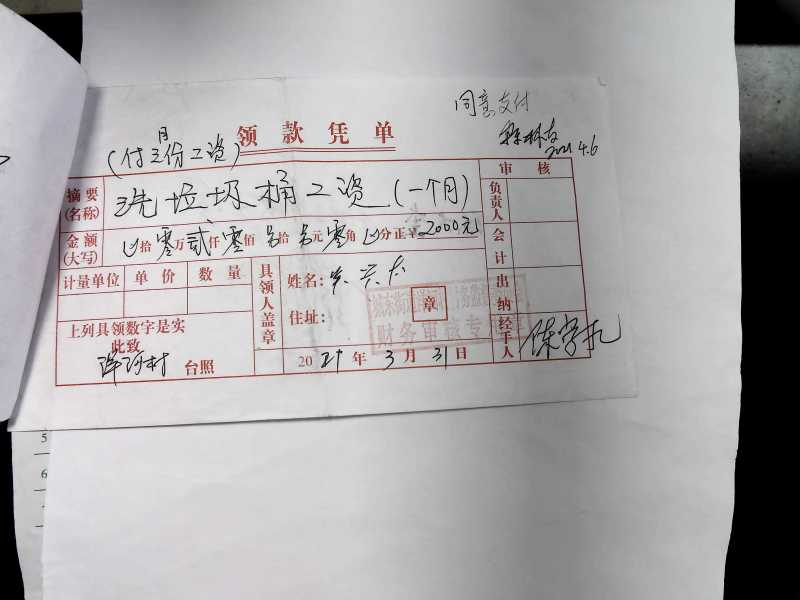 同意支付
2021.4.6
领款凭单
(付三月份工资)
摘要(名称) 洗垃圾桶工资(一个月)
审核
负责人
金额(大写) 拾零万贰仟零佰 拾 元零角 分正¥2000元
会计
计量单位 单价 数量
具领人盖章
姓名:
住址:
章
出纳
财务审核专
上列具领数字是实
此致
村 台照
2021年3月31日
经手人
5
6